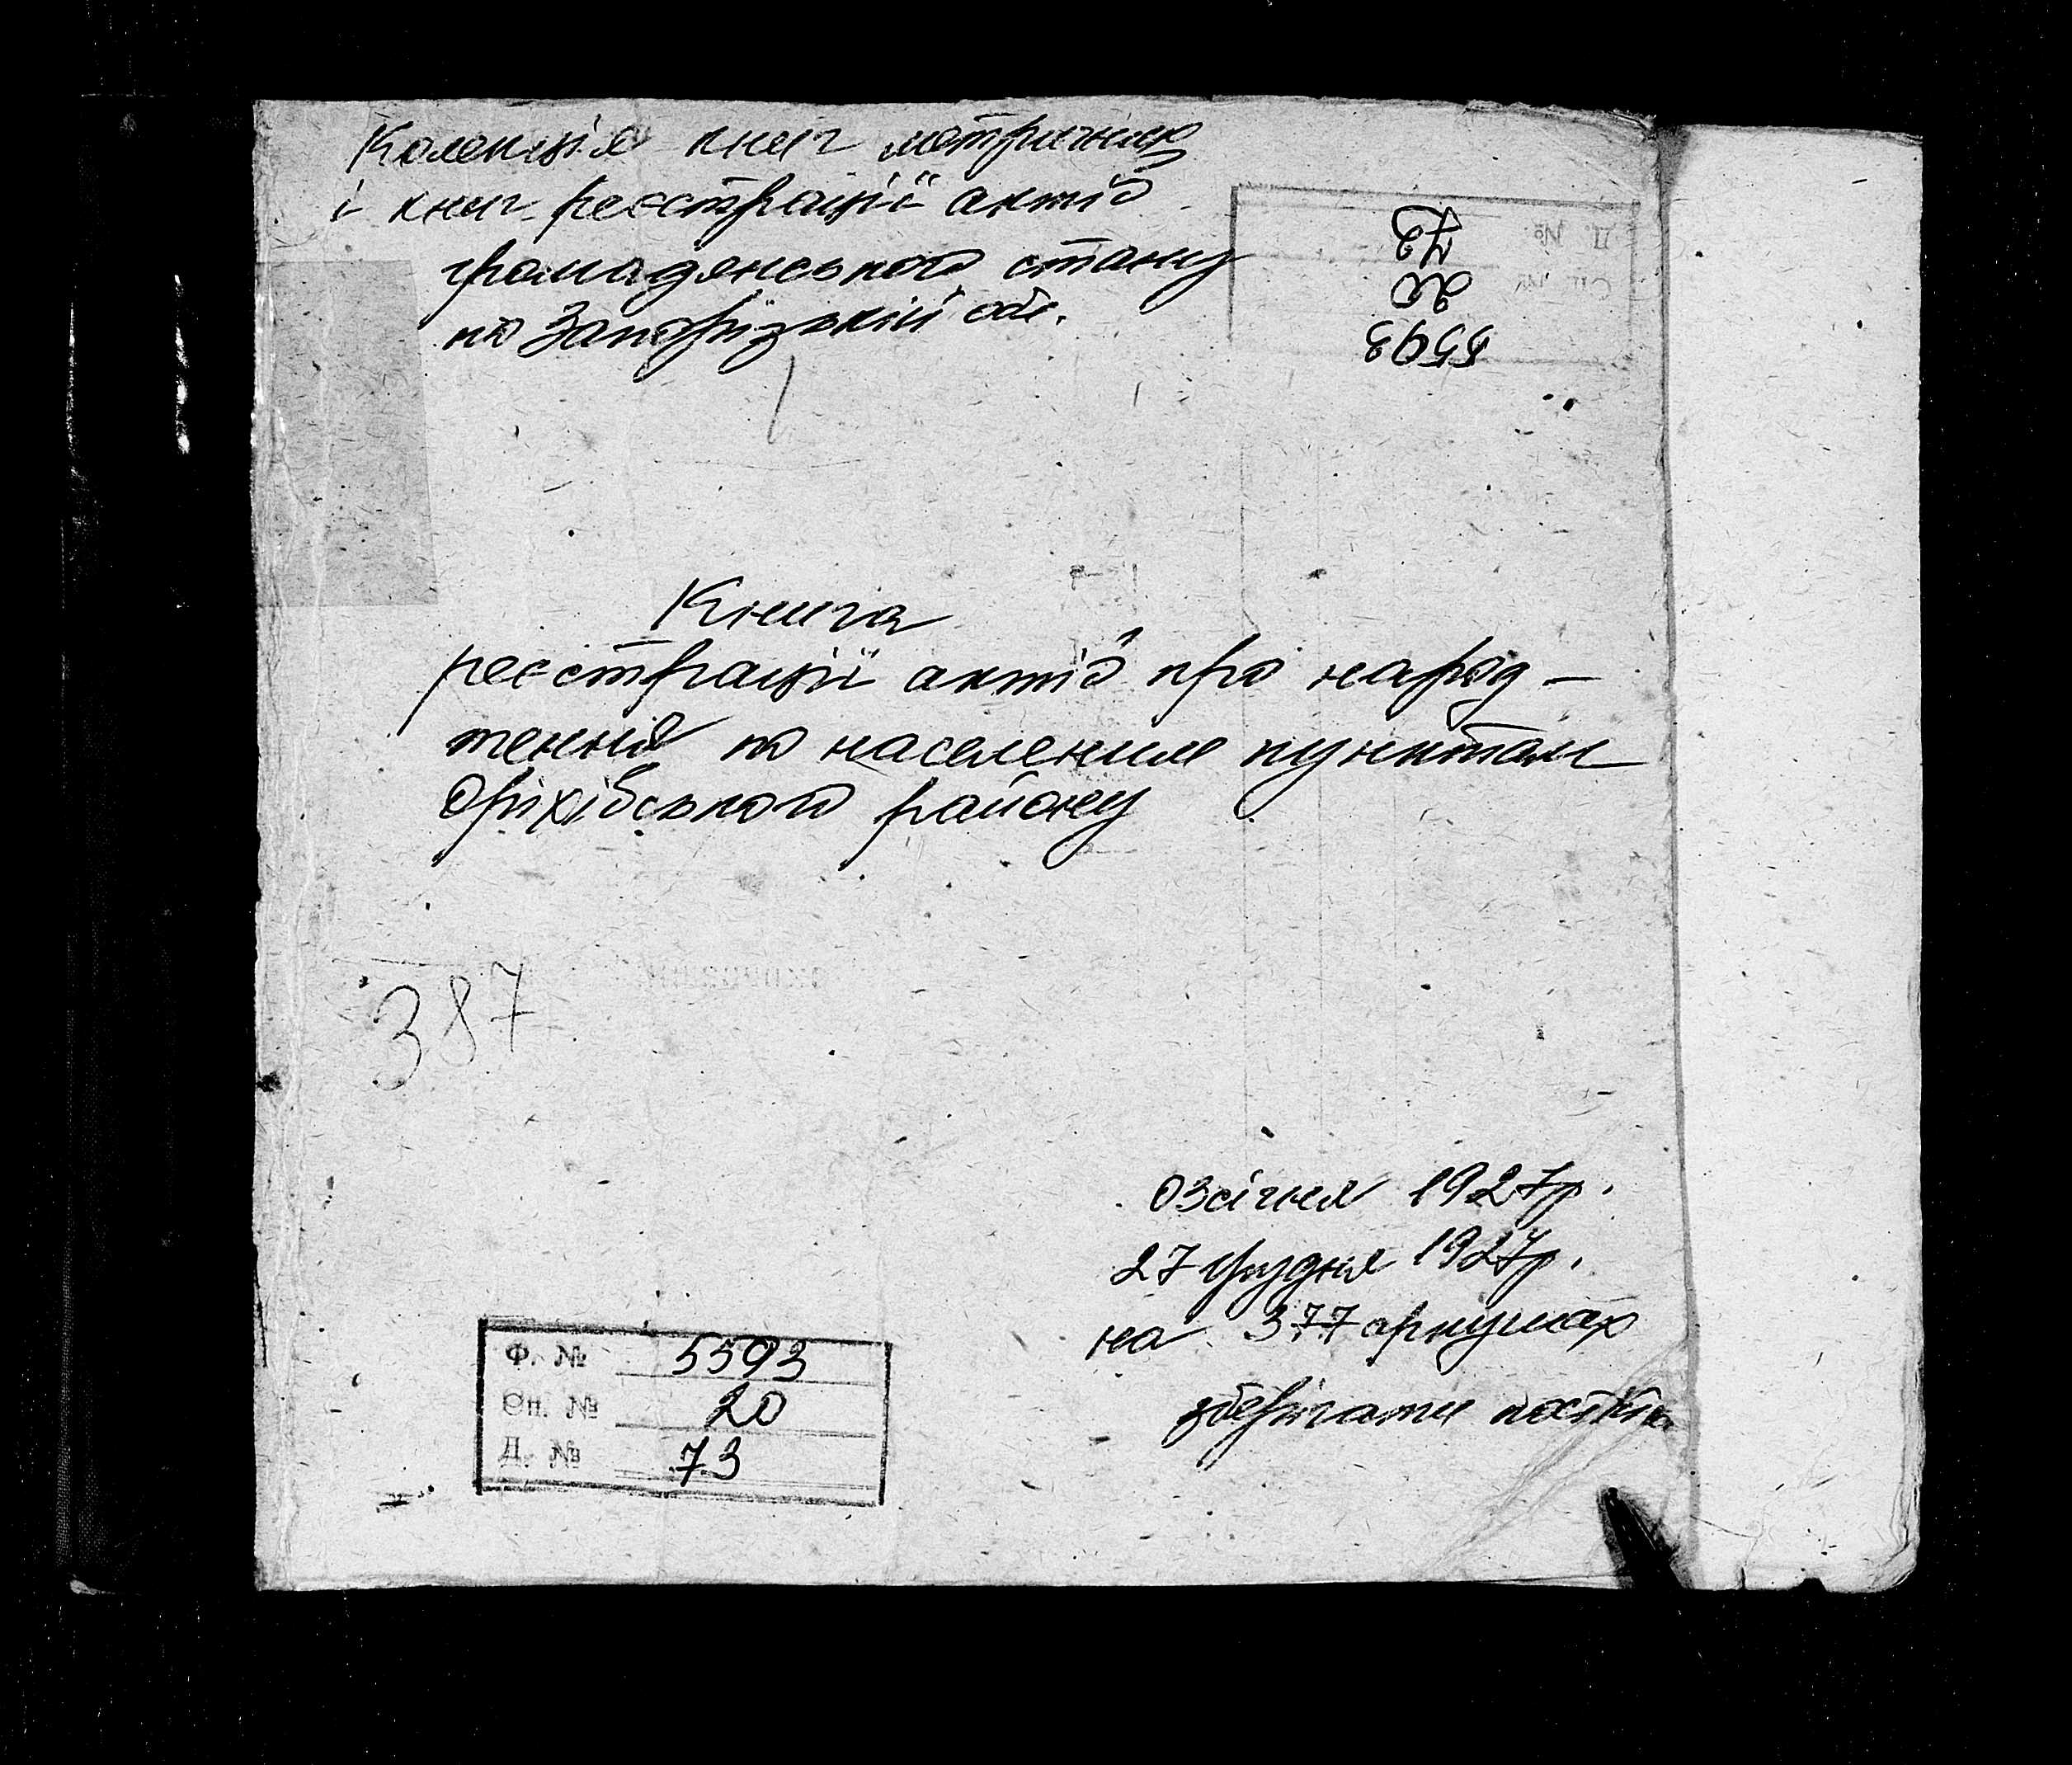 Колекція книг метричних
і книг реєстрації актів
громадянського стану
по Запорізькій обл.
П. №
73
20
5593
Книга
реєстрації актів про народ-
ження по населеним пунктам
Оріхівського району
387
03 січня 1927р.
27 грудня 1927р.
на 377 аркушах
зберігати постійно
Ф. № 5593
Оп. № 20
Д. № 73